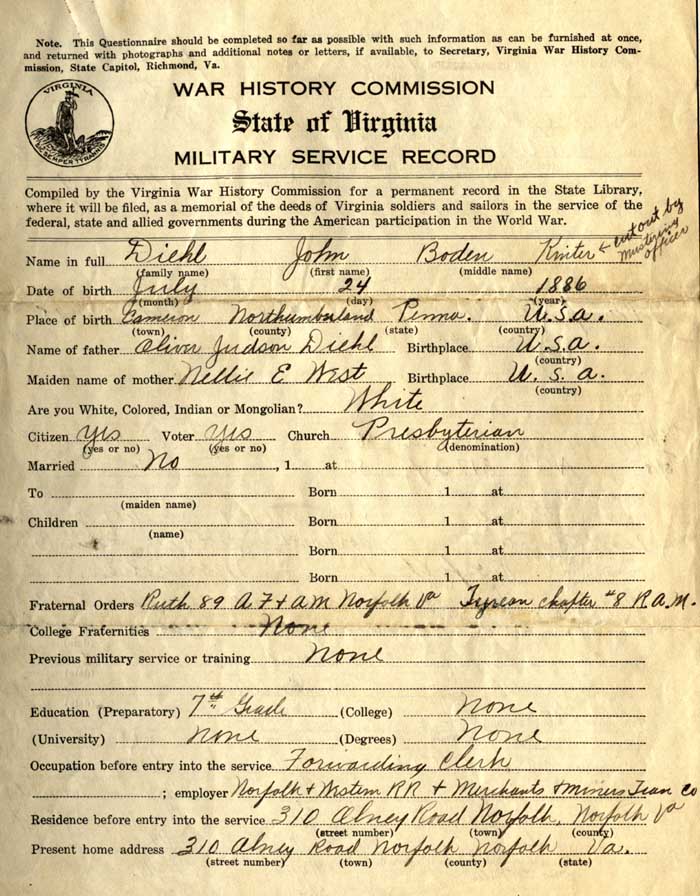 Note. This Questionnaire should be completed so far as possible with such information as can be furnished at once,
and returned with photographs and additional notes or letters, if available, to Secretary, Virginia War History Com-
mission, State Capitol, Richmond, Va.
VIRGINIA
SIC SEMPER TYRANNIS
WAR HISTORY COMMISSION
State of Virginia
MILITARY SERVICE RECORD
Compiled by the Virginia War History Commission for a permanent record in the State Library,
where it will be filed, as a memorial of the deeds of Virginia soldiers and sailors in the service of the
federal, state and allied governments during the American participation in the World War.
Name in full Diehl John Boden Kinter ← cut out by
mustering
officer
(family name) (first name) (middle name)
Date of birth July 24 1886
(month) (day) (year)
Place of birth Cameron Northumberland Penna. U.S.a.
(town) (county) (state) (country)
Name of father Oliver Judson Diehl Birthplace U.S.a.
(country)
Maiden name of mother Nellie E West Birthplace U.S.a.
(country)
Are you White, Colored, Indian or Mongolian? White
Citizen yes Voter yes Church Presbyterian
(yes or no) (yes or no) (denomination)
Married No , 1 at
To Born 1 at
(maiden name)
Children Born 1 at
(name)
Born 1 at
Born 1 at
Fraternal Orders Ruth 89 A F + A M Norfolk Va Tyrean Chapter #8 R.A.M.
College Fraternities None
Previous military service or training None
Education (Preparatory) 7th Grade (College) None
(University) None (Degrees) None
Occupation before entry into the service Forwarding Clerk
; employer Norfolk + Western RR + Merchants + Miners Tran Co
Residence before entry into the service 310 Road Norfolk, Norfolk Va
(street number) (town) (county)
Present home address 310 Road Norfolk Norfolk Va.
(street number) (town) (county) (state)